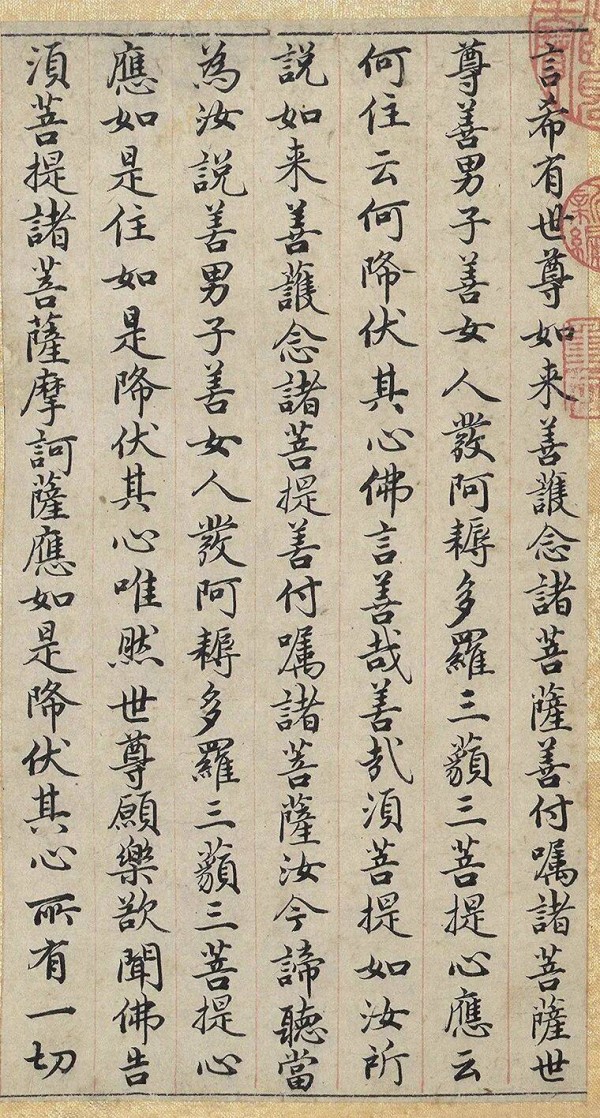 言希有世尊如来善護念諸菩薩善付嘱諸菩薩世
尊善男子善女人發阿耨多羅三藐三菩提心應云
何住云何降伏其心佛言善哉善哉湏菩提如汝所
説如来善護念諸菩提善付嘱諸菩薩汝今諦聽當
為汝説善男子善女人發阿耨多羅三藐三菩提心
應如是住如是降伏其心唯然世尊願樂欲聞佛告
湏菩提諸菩薩摩訶薩應如是降伏其心所有一切